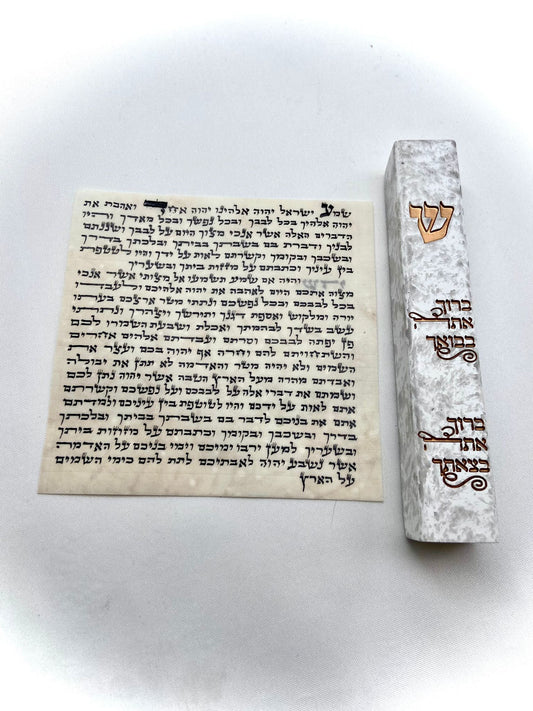 שמע ישראל יהוה אלהינו יהוה אחד ואהבת את
יהוה אלהיך בכל לבבך ובכל נפשך ובכל מאדך והיו
הדברים האלה אשר אנכי מצוך היום על לבבך ושננתם
לבניך ודברת בם בשבתך בביתך ובלכתך בדרך
ובשכבך ובקומך וקשרתם לאות על ידך והיו לטטפת
בין עיניך וכתבתם על מזזות ביתך ובשעריך
והיה אם שמע תשמעו אל מצותי אשר אנכי
מצוה אתכם היום לאהבה את יהוה אלהיכם ולעבדו
בכל לבבכם ובכל נפשכם ונתתי מטר ארצכם בעתו
יורה ומלקוש ואספת דגנך ותירשך ויצהרך ונתתי
עשב בשדך לבהמתך ואכלת ושבעת השמרו לכם
פן יפתה לבבכם וסרתם ועבדתם אלהים אחרים
והשתחויתם להם וחרה אף יהוה בכם ועצר את
השמים ולא יהיה מטר והאדמה לא תתן את יבולה
ואבדתם מהרה מעל הארץ הטבה אשר יהוה נתן לכם
ושמתם את דברי אלה על לבבכם ועל נפשכם וקשרתם
אתם לאות על ידכם והיו לטוטפת בין עיניכם ולמדתם
אתם את בניכם לדבר בם בשבתך בביתך ובלכתך
בדרך ובשכבך ובקומך וכתבתם על מזוזות ביתך
ובשעריך למען ירבו ימיכם וימי בניכם על האדמה
אשר נשבע יהוה לאבתיכם לתת להם כימי השמים
על הארץ
ש
ברוך
אתה
בבואך
ברוך
אתה
בצאתך